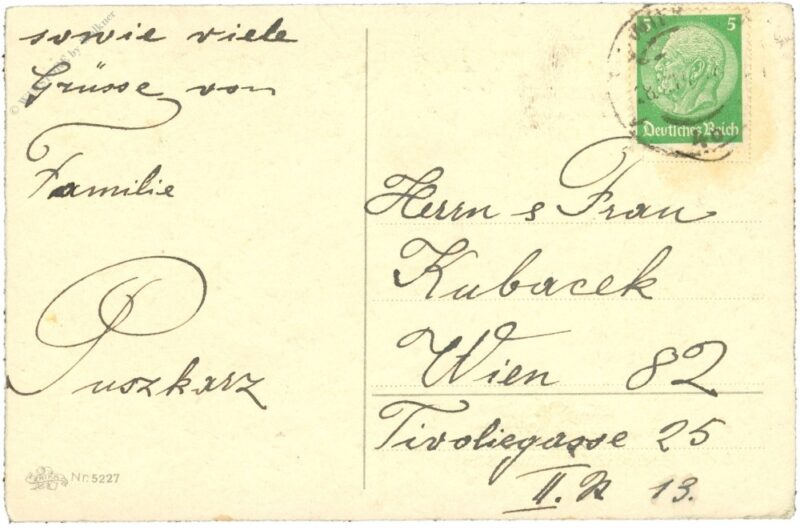 sowie viele
Grüsse von
Familie
Puszkarz
Nr. 5227
5 5
Deutsches Reich
Herrn & Frau
Kubacek
Wien 82
Tivoliegasse 25
II. 13.